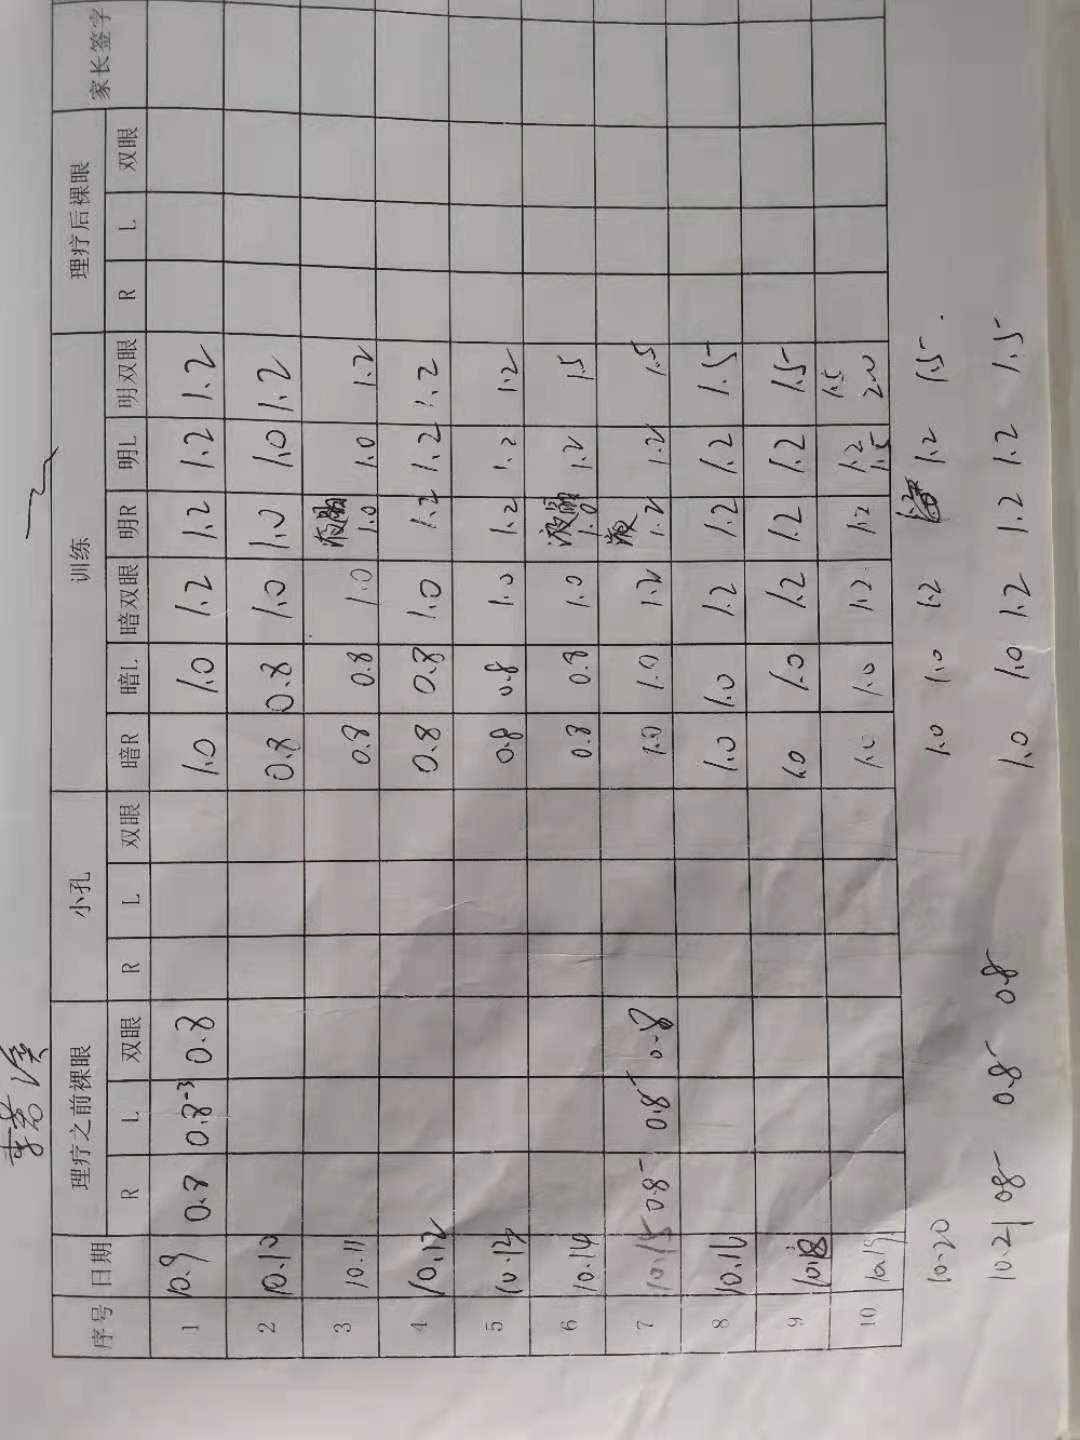 序号 日期 理疗之前裸眼 小孔 训练 理疗后裸眼 家长签字
R L 双眼 R L 双眼 暗R 暗L 暗双眼 明R 明L 明双眼 R L 双眼
1 10.9 0.8 0.8⁻³ 0.8 1.0 1.0 1.2 1.2 1.2 1.2
2 10.10 0.8 0.8 1.0 1.0 1.0 1.2
3 10.11 0.8 0.8 1.0 液晶 1.0 1.0 1.2
4 10.12 0.8 0.8 1.0 1.2 1.2 1.2
5 10.13 0.8 0.8 1.0 1.2 1.2 1.2
6 10.14 0.8 0.8 1.0 液晶 1.0 1.2 1.5
7 10.15 0.8⁻ 0.8⁻ 0.8 1.0 1.0 1.2 液 1.2 1.2 1.5
8 10.16 1.0 1.0 1.2 1.2 1.2 1.5
9 10.18 1.0 1.0 1.2 1.2 1.2 1.5
10 10.19 1.0 1.0 1.2 1.2 1.2 1.5 1.5 2.0
10.20 1.0 1.0 1.2 1.2 1.5
10.21 0.8⁻ 0.8⁻ 0.8 1.0 1.0 1.2 1.2 1.2 1.5